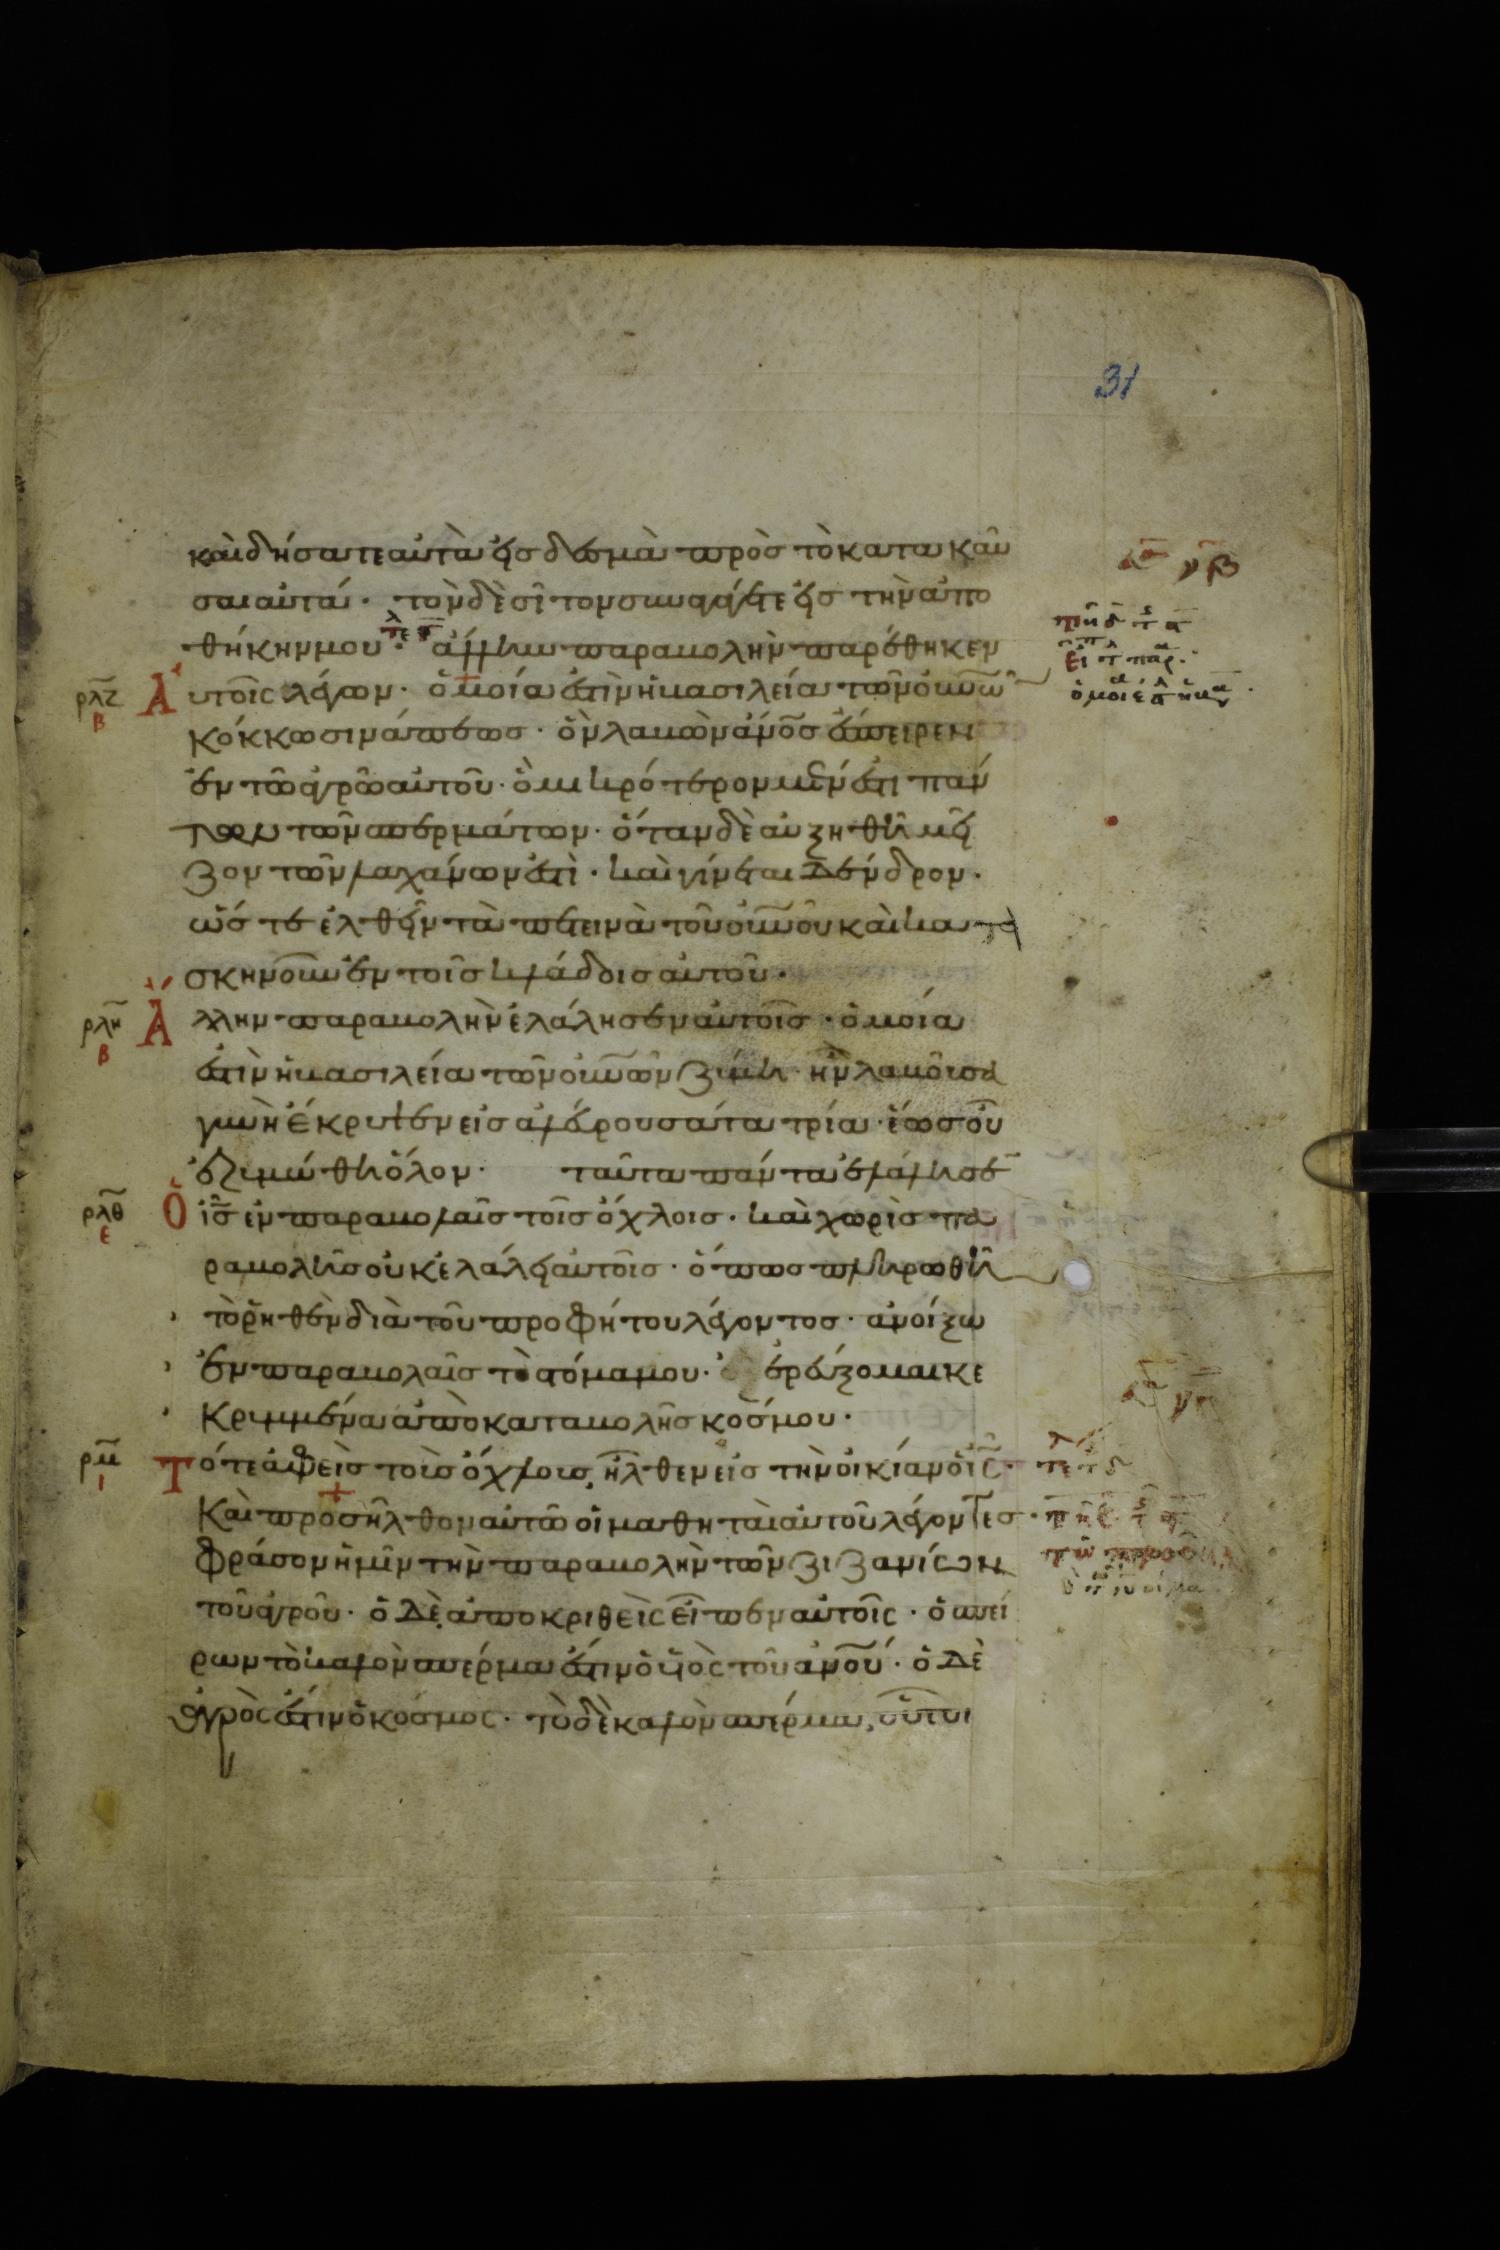 31
καὶ δήσατε αὐτὰ εἰς δεσμὰ πρὸς τὸ κατακαῦ
σαι αὐτά· τὸν δὲ σῖτον συναγάγετε εἰς τὴν ἀπο
θήκην μου· ἄλλην παραβολὴν παρέθηκεν
ρλζ β Αὐτοῖς λέγων· ὁμοία ἐστὶν ἡ βασιλεία τῶν οὐνῶν
κόκκω σινάπεως· ὃν λαβὼν ἄνος ἔσπειρεν
ἐν τῶ ἀγρῶ αὐτοῦ· ὃ μικρότερον μέν ἐστι πάν
των τῶν σπερμάτων· ὅταν δὲ αὐξηθῆ μεῖ
ζον τῶν λαχάνων ἐστὶ· καὶ γίνεται δένδρον·
ὥστε ἐλθεῖν τὰ πετεινὰ τοῦ οὐνοῦ καὶ κατα
σκηνοῦν ἐν τοῖς κλάδοις αὐτοῦ·
ρλη β Ἄλλην παραβολὴν ἐλάλησεν αὐτοῖς· ὁμοία
ἐστὶν ἡ βασιλεία τῶν οὐνῶν ζύμη· ἣν λαβοῦσα
γυνὴ ἔκρυψεν εἰς ἀλεύρου σάτα τρία· ἕως οὗ
ἐζυμώθη ὅλον· ταῦτα πάντα ἐλάλησε
ρλθ ε Ὁ ἰς ἐν παραβολαῖς τοῖς ὄχλοις· καὶ χωρὶς πα
ραβολῆς οὐκ ἐλάλει αὐτοῖς· ὅπως πληρωθῆ
τὸ ῥηθὲν διὰ τοῦ προφήτου λέγοντος· ἀνοίξω
ἐν παραβολαῖς τὸ στόμα μου· ἐρεύξομαι κε
κρυμμένα ἀπὸ καταβολῆς κόσμου·
ρμ ι Τότε ἀφεὶς τοὺς ὄχλους, ἦλθεν εἰς τὴν οἰκίαν ὁ ἰς·
Καὶ προσῆλθον αὐτῶ οἱ μαθηταὶ αὐτοῦ λέγοντες·
φράσον ἡμῖν τὴν παραβολὴν τῶν ζιζανίων
τοῦ ἀγροῦ· ὁ δὲ ἀποκριθεὶς εἶπεν αὐτοῖς· ὁ σπεί
ρων τὸ καλὸν σπέρμα ἐστίν ὁ υἱὸς τοῦ ἀνου· ὁ δὲ
ἀγρὸς ἐστιν ὁ κόσμος· τὸ δὲ καλὸν σπέρμα, οὗτοι